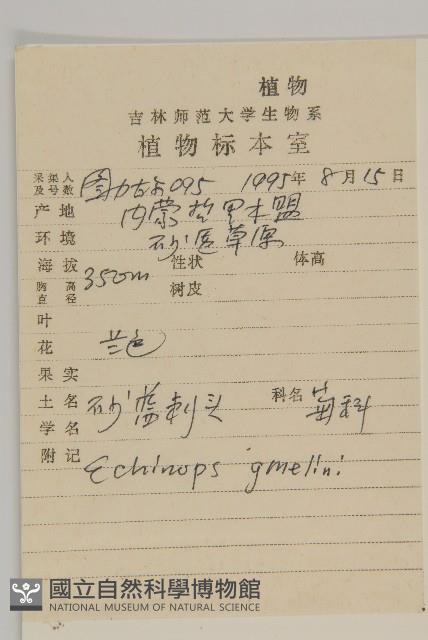 植物
吉林师范大学生物系
植物标本室
采集人及号数 图力古尔095 1995年8月15日
产地 内蒙哲里木盟
环境 砂质草原
海拔 350m 性状 体高
胸高直径 树皮
叶
花 兰色
果实
土名 砂蓝刺头 科名 菊科
学名
附记 Echinops gmelini
國立自然科學博物館
NATIONAL MUSEUM OF NATURAL SCIENCE